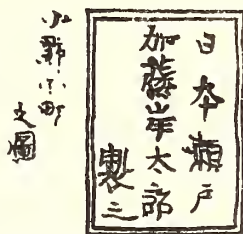 日本瀬戸
加藤岸太郎
製之
小野小町
文圖